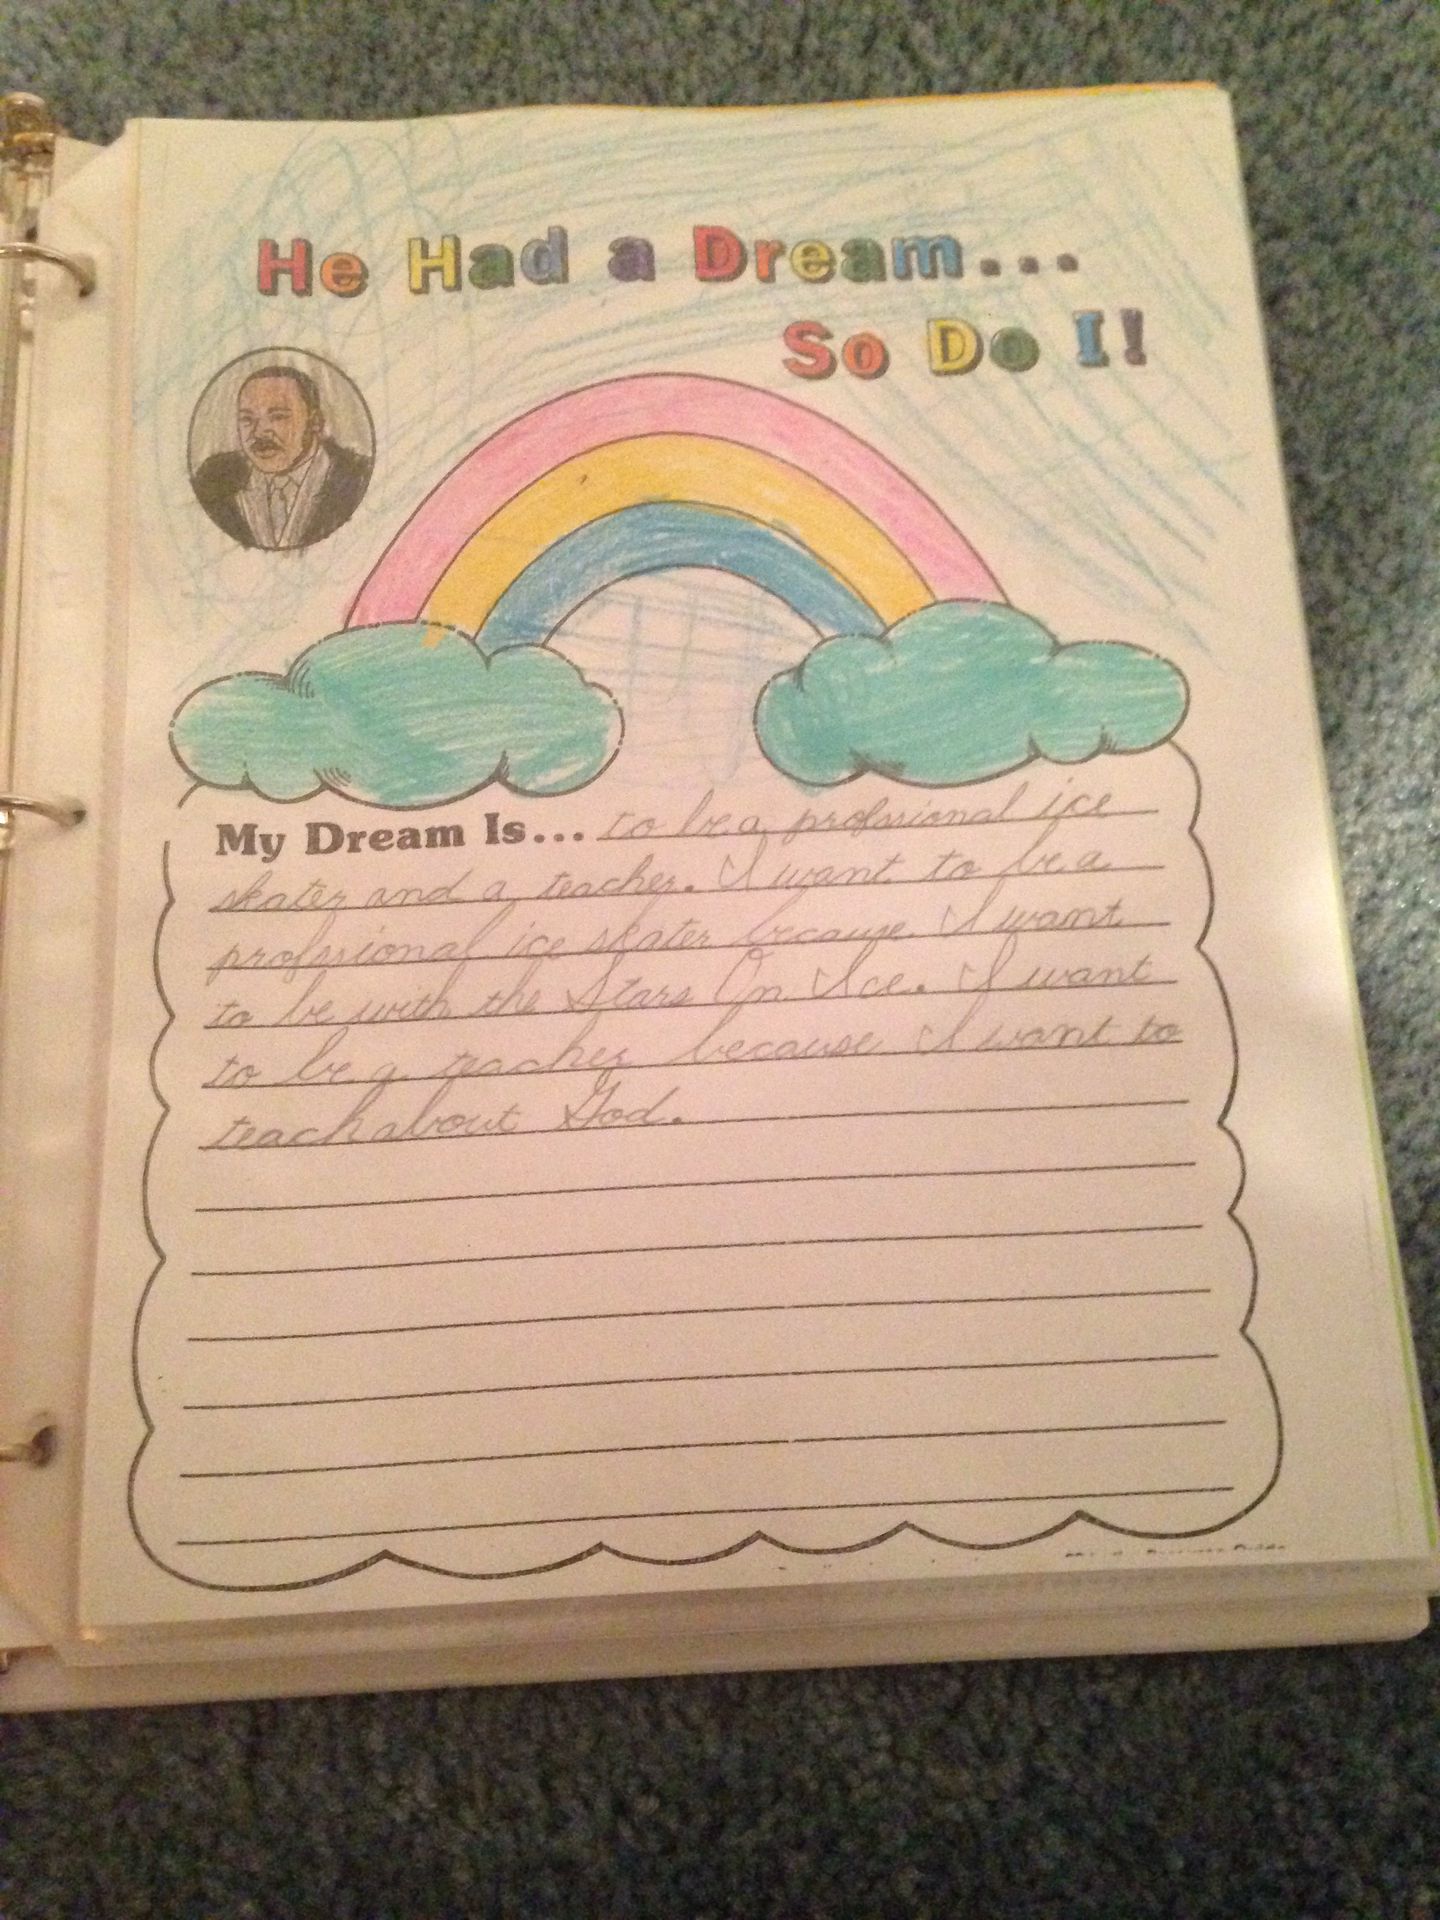 He Had a Dream...
So Do I!
My Dream Is... to be a profssional ice
skater and a teacher. I want to be a
profssional ice skater because I want
to be with the Stars On Ice. I want
to be a teacher because I want to
teach about God.